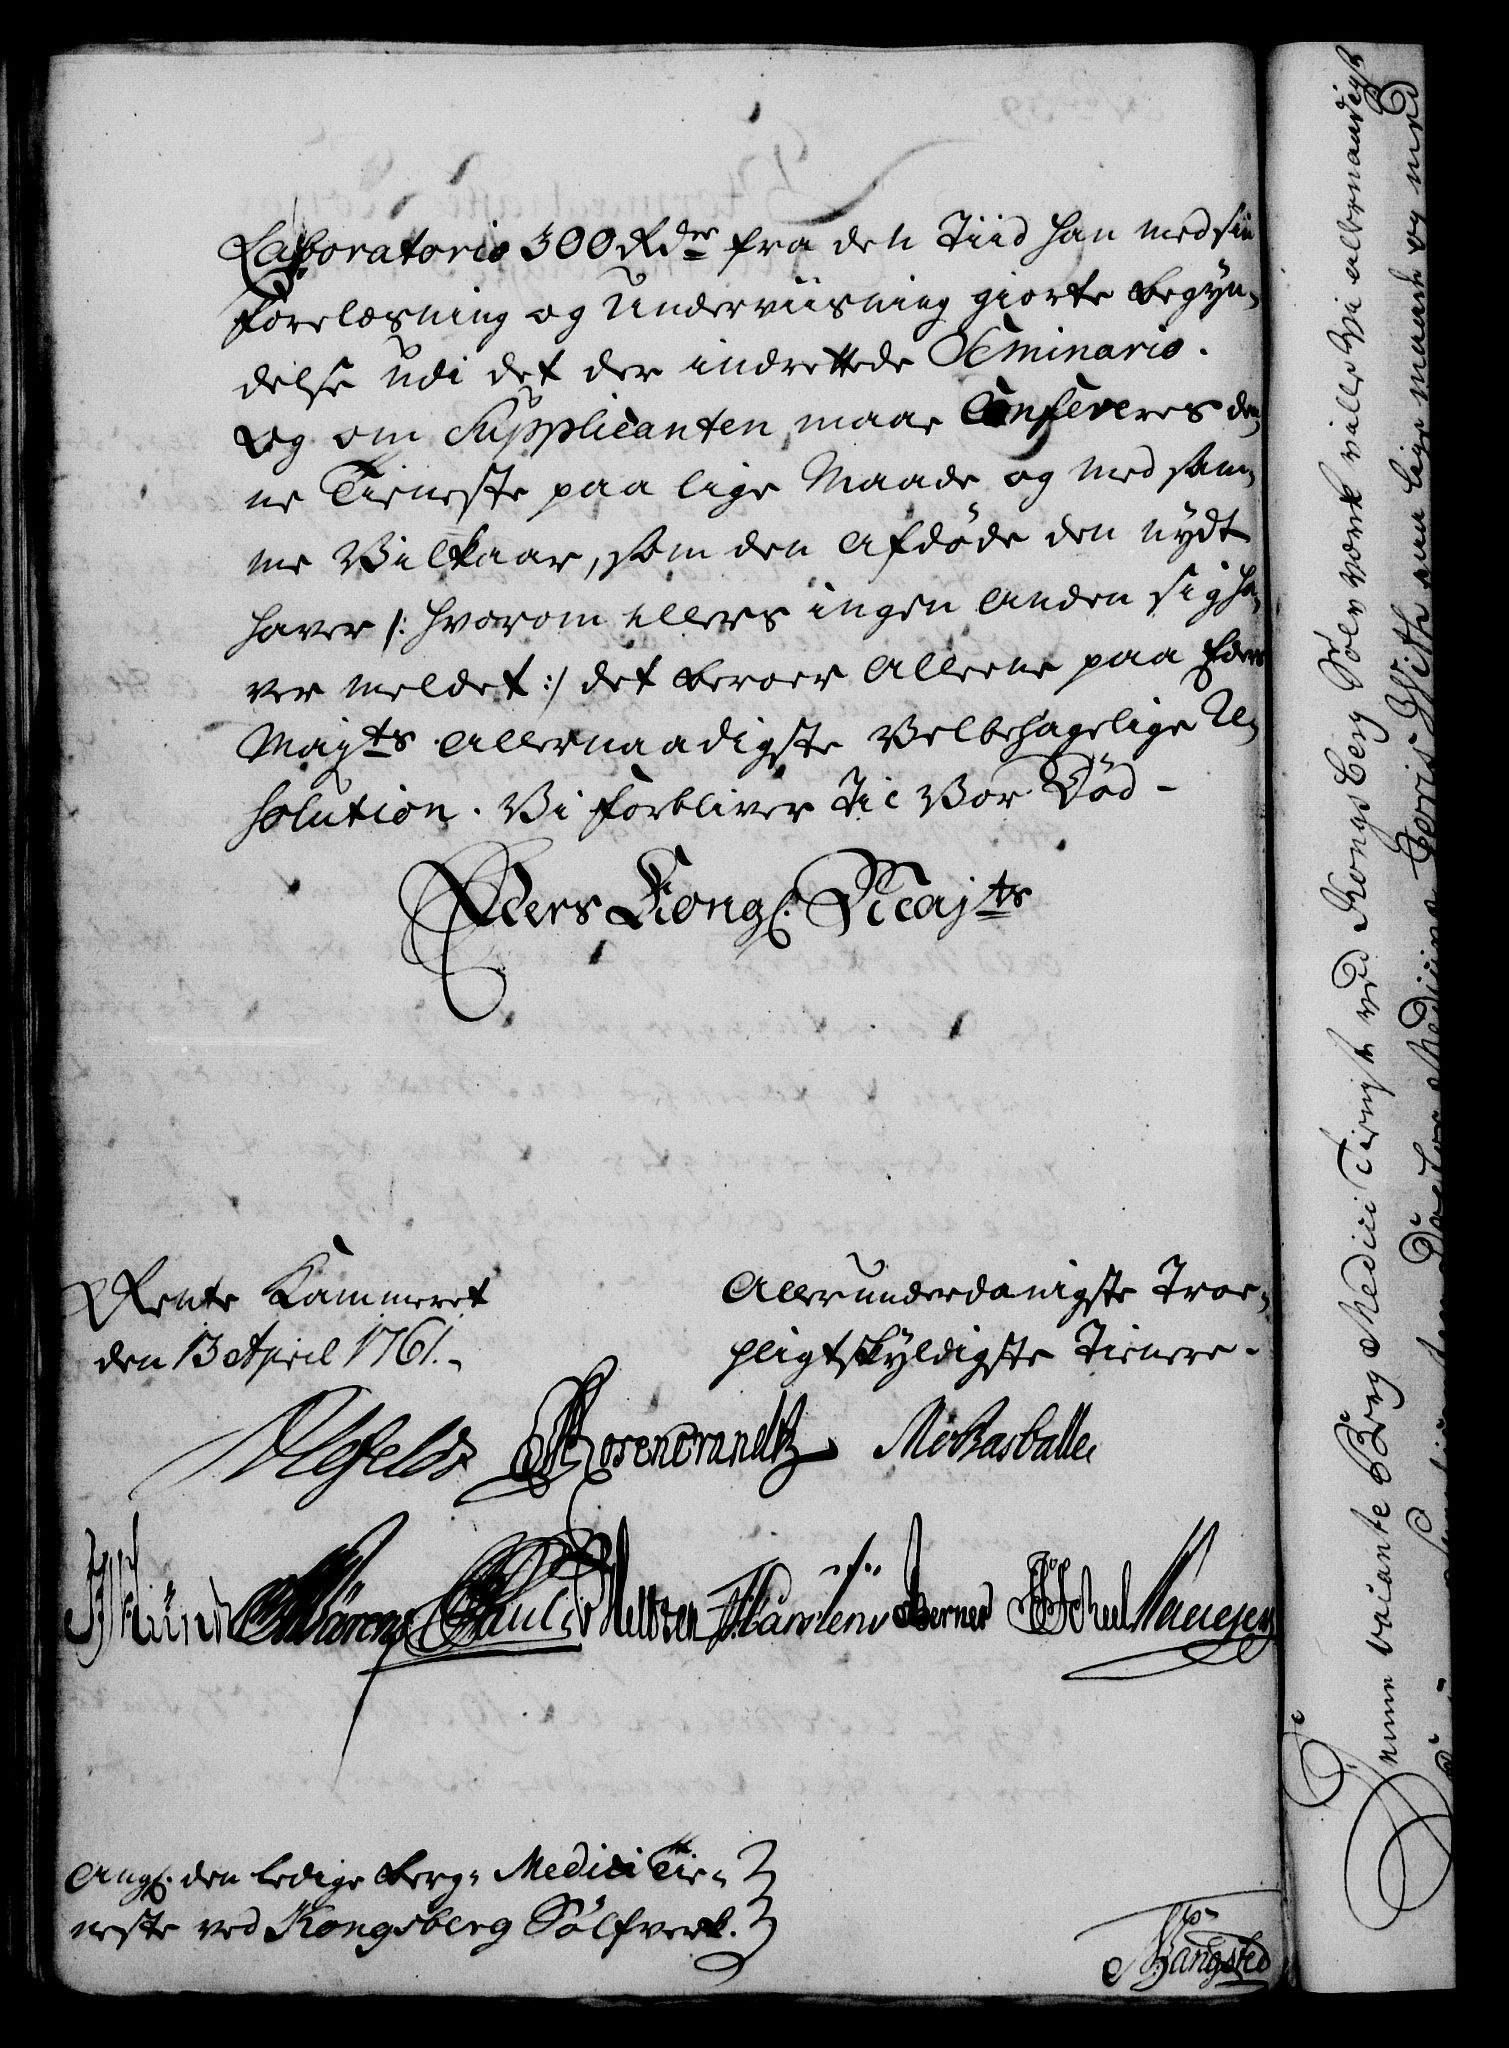 Laboratorio 300 Rd.er fra den Tiid han med sin
Forelæsning og Underviisning giorte begyn-
delse udi det der indrettede Seminario.
Og om Supplicanten maae Confereres den-
ne Tieneste paa lige Maade og med sam-
me Vilkaar, som den Afdøde den nydt
haver /: hvorom ellers ingen Anden sig ha-
ver meldet :/ det beroer Alleene paa Eders
Mayts Allernaadigste Velbehagelige Re-
solution. Vi forbliver Til Vor Død -
Eders Kongl. Mayts
Rente Kammeret
den 13 April 1761.
Allerunderdanigste Troe-
pligtskyldigste Tienere.
Ahlefeldt Rosencrandtz
Wärens Paul Meltzer Berner
Ang. den ledige berg- Medici Tie-
neste ved Kongsberg Sölfverk.
Bangsted
Denne vacante Berg Medici Tieniste ved Kongsberg Sølv værk ville Vi allernaadigst
Doctor Medicinæ Joris With paa lige maade og med